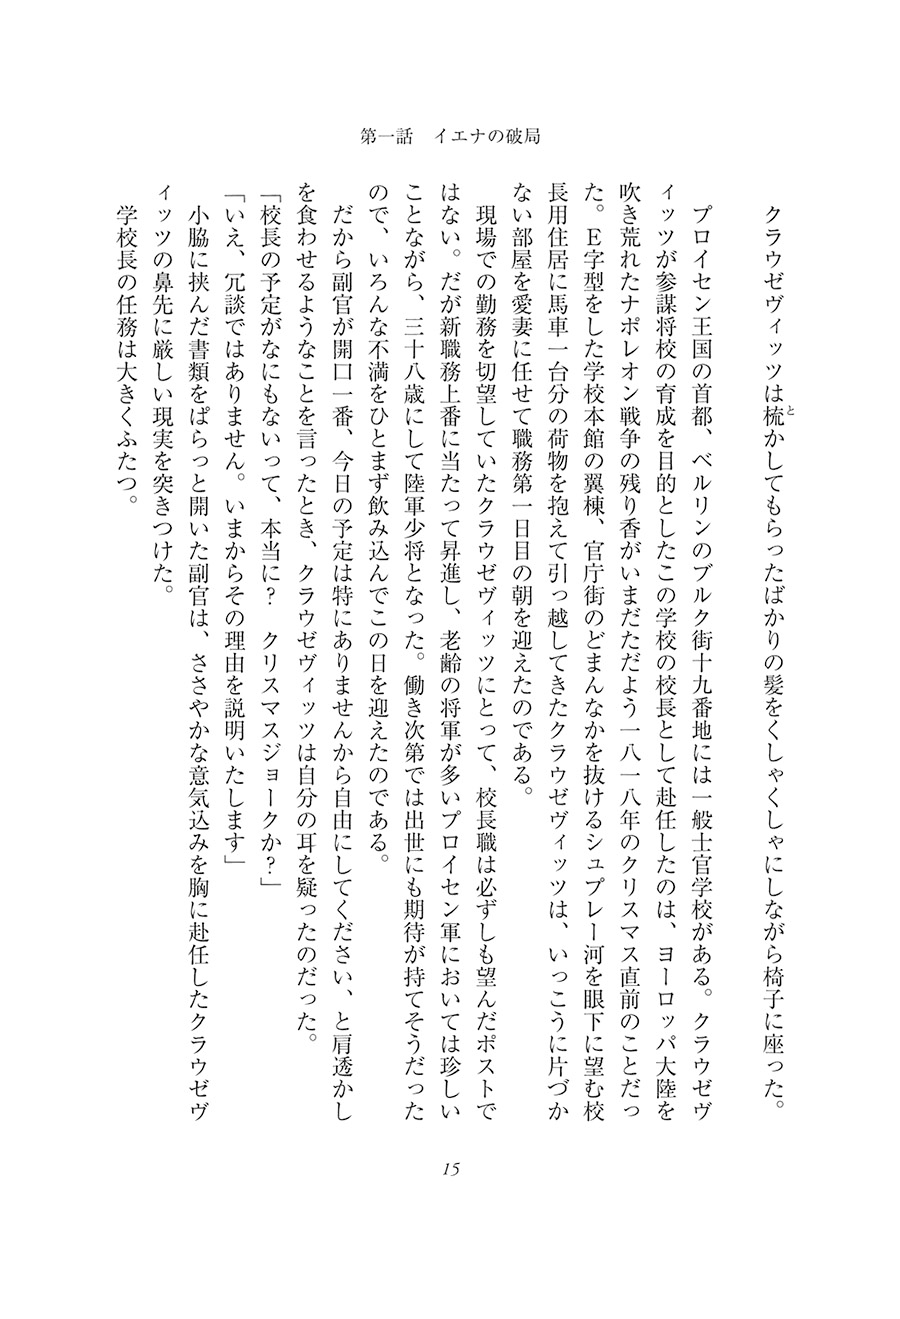 第一話　イエナの破局
クラウゼヴィッツは梳かしてもらったばかりの髪をくしゃくしゃにしながら椅子に座った。
と
プロイセン王国の首都、ベルリンのブルク街十九番地には一般士官学校がある。クラウゼヴ
ィッツが参謀将校の育成を目的としたこの学校の校長として赴任したのは、ヨーロッパ大陸を
吹き荒れたナポレオン戦争の残り香がいまだただよう一八一八年のクリスマス直前のことだっ
た。E字型をした学校本館の翼棟、官庁街のどまんなかを抜けるシュプレー河を眼下に望む校
長用住居に馬車一台分の荷物を抱えて引っ越してきたクラウゼヴィッツは、いっこうに片づか
ない部屋を愛妻に任せて職務第一日目の朝を迎えたのである。
現場での勤務を切望していたクラウゼヴィッツにとって、校長職は必ずしも望んだポストで
はない。だが新職務上番に当たって昇進し、老齢の将軍が多いプロイセン軍においては珍しい
ことながら、三十八歳にして陸軍少将となった。働き次第では出世にも期待が持てそうだった
ので、いろんな不満をひとまず飲み込んでこの日を迎えたのである。
だから副官が開口一番、今日の予定は特にありませんから自由にしてください、と肩透かし
を食わせるようなことを言ったとき、クラウゼヴィッツは自分の耳を疑ったのだった。
「校長の予定がなにもないって、本当に？　クリスマスジョークか？」
「いえ、冗談ではありません。いまからその理由を説明いたします」
小脇に挟んだ書類をぱらっと開いた副官は、ささやかな意気込みを胸に赴任したクラウゼヴ
ィッツの鼻先に厳しい現実を突きつけた。
学校長の任務は大きくふたつ。
15